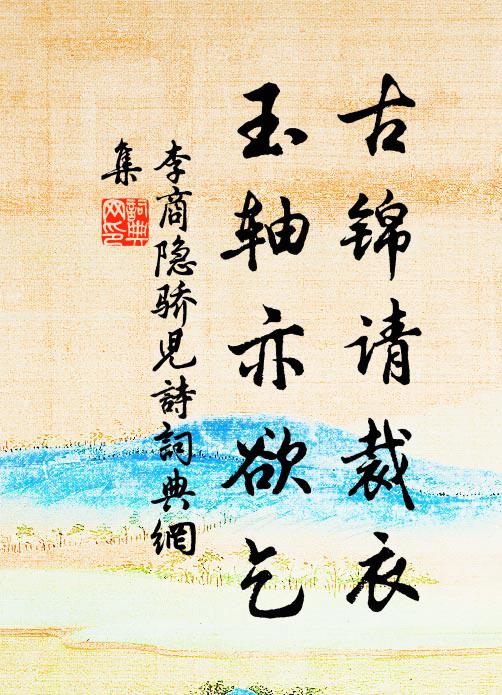 古锦请裁衣
玉轴亦欲乞
李商隐骄児詩詞典網
集
詞典
网印